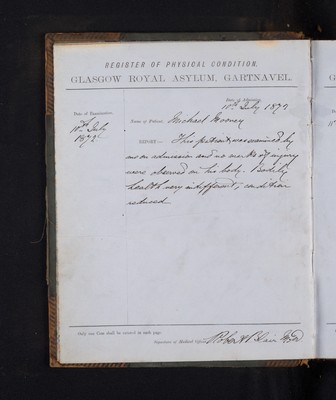 REGISTER OF PHYSICAL CONDITION,
GLASGOW ROYAL ASYLUM, GARTNAVEL.
Date of Admission,
10th July 1872
Date of Examination.
10th July
1872
Name of Patient, Michael Mooney
REPORT.— This patient was examined by
me on admission and no marks of injury
were observed on his body. Bodily
health very indifferent; condition
reduced.
Only one Case shall be entered in each page.
Signature of Medical Officer, Robert